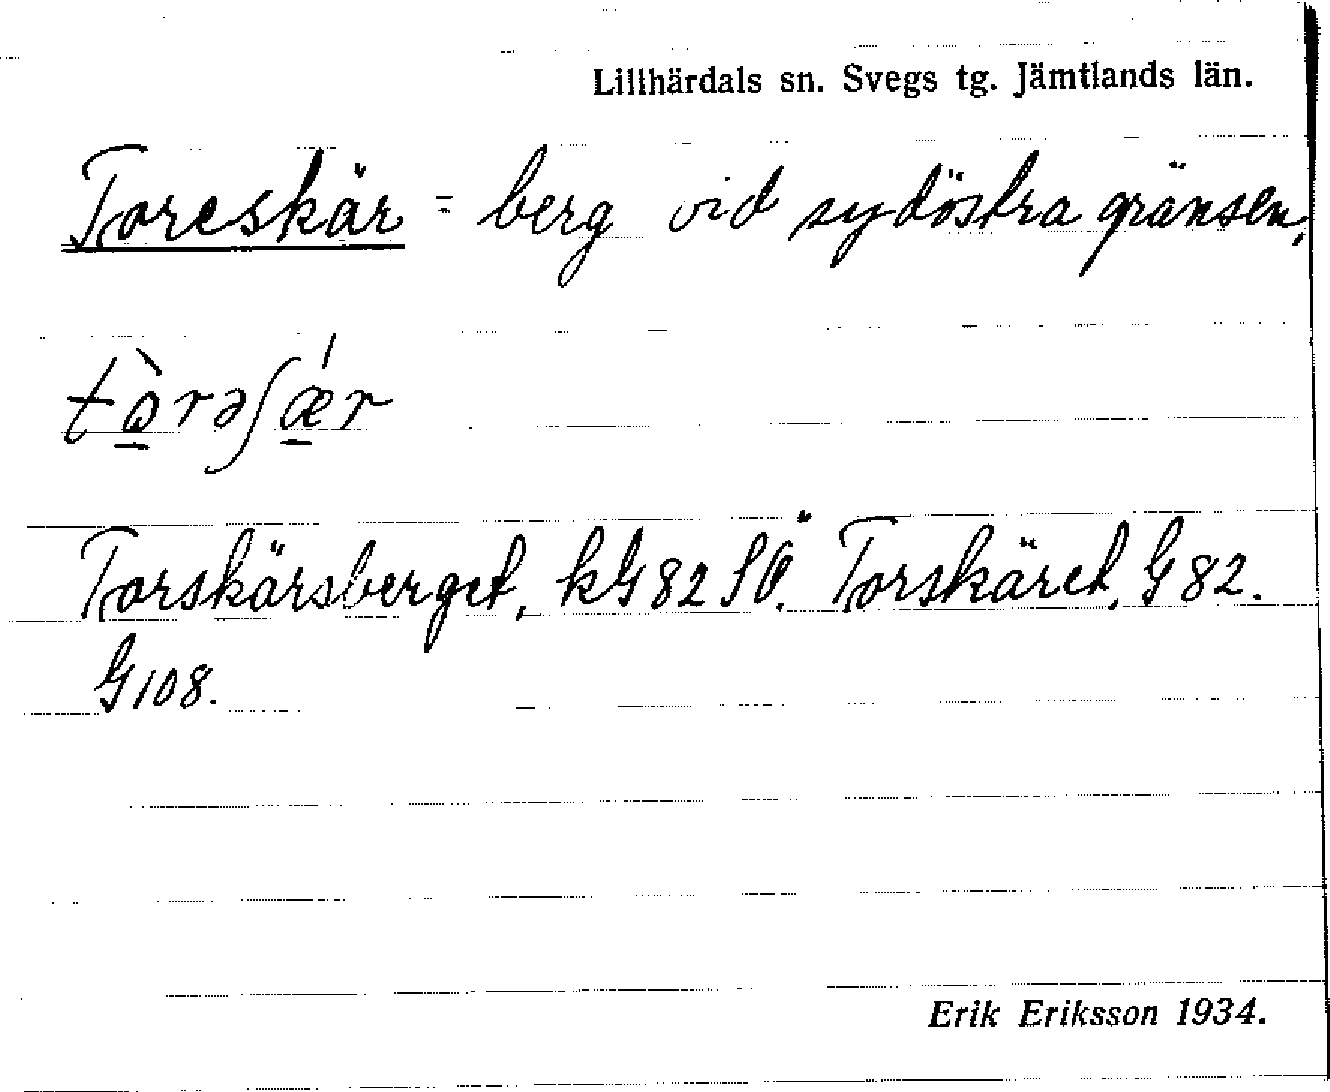 Lillhärdals sn. Svegs tg. Jämtlands län.
Toreskär = berg vid sydöstra gränsen.
tò̱rəʃǽ̱r
Torskärsberget, kG82 SÖ. Torskäret, G82.
G108.
Erik Eriksson 1934.